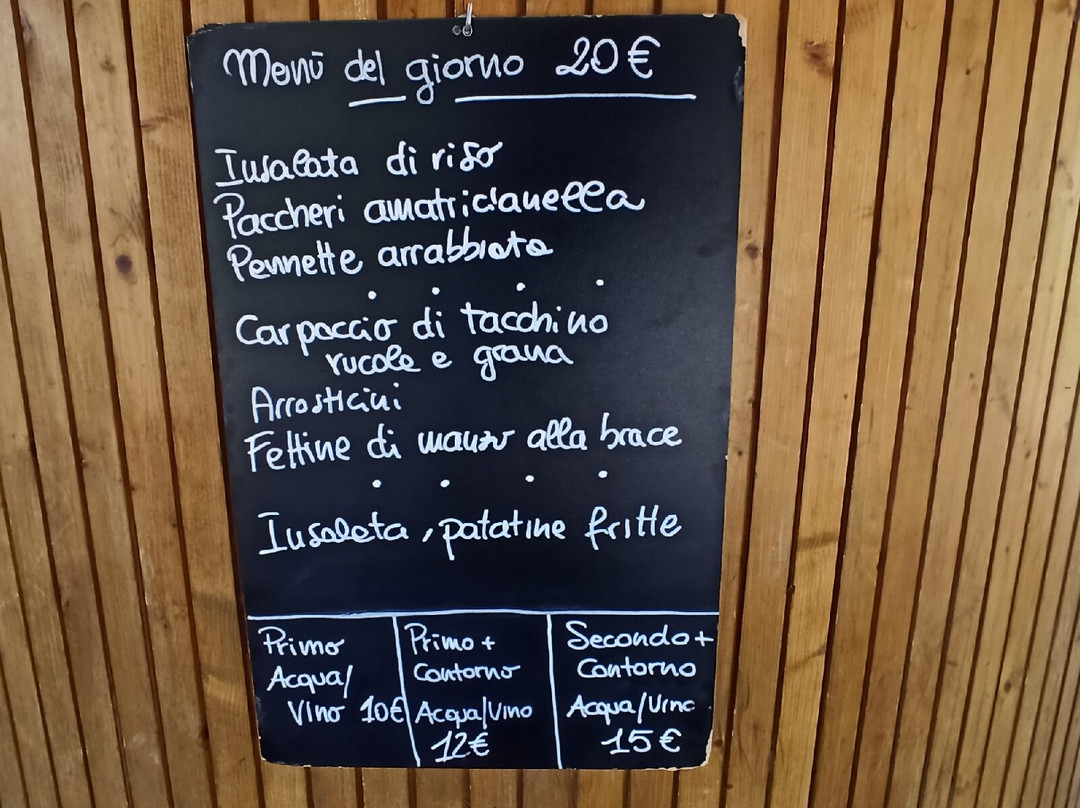 Menù del giorno 20€
Insalata di riso
Paccheri amatricianella
Pennette arrabbiata
Carpaccio di tacchino
rucola e grana
Arrosticini
Fettine di manzo alla brace
Insalata, patatine fritte
Primo
Acqua/
Vino 10€
Primo +
Contorno
Acqua/Vino
12€
Secondo +
Contorno
Acqua/Vino
15€